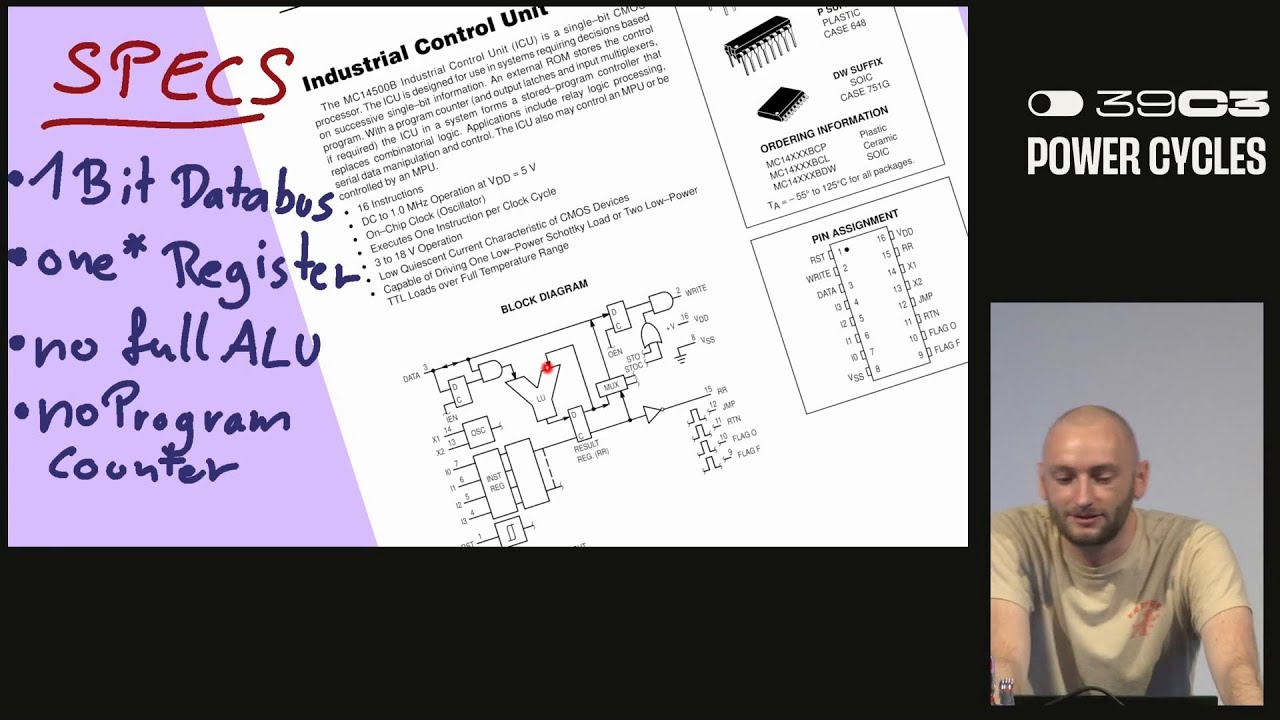 SPECS
• 1 Bit Databus
• one* Register
• no full ALU
• no Program
Counter
Industrial Control Unit
The MC14500B Industrial Control Unit (ICU) is a single–bit CMOS
processor. The ICU is designed for use in systems requiring decisions based
on successive single–bit information. An external ROM stores the control
program. With a program counter (and output latches and input multiplexers,
if required) the ICU in a system forms a stored–program controller that
replaces combinatorial logic. Applications include relay logic processing,
serial data manipulation and control. The ICU also may control an MPU or be
controlled by an MPU.
• 16 Instructions
• DC to 1.0 MHz Operation at VDD = 5 V
• On–Chip Clock (Oscillator)
• Executes One Instruction per Clock Cycle
• 3 to 18 V Operation
• Low Quiescent Current Characteristic of CMOS Devices
• Capable of Driving One Low–Power Schottky Load or Two Low–Power
TTL Loads over Full Temperature Range
BLOCK DIAGRAM
DATA 3
D
C
IEN
LU
X1 14
X2 13
OSC
I0 7
I1 6
I2 5
I3 4
INST
REG
1
D
C
RESULT
REG. (RR)
D
C
OEN
MUX
STO
STOC
2 WRITE
+V 16 VDD
8 VSS
15 RR
12 JMP
11 RTN
10 FLAG O
9 FLAG F
PLASTIC
CASE 648
DW SUFFIX
SOIC
CASE 751G
ORDERING INFORMATION
MC14XXXBCP Plastic
MC14XXXBCL Ceramic
MC14XXXBDW SOIC
TA = – 55° to 125°C for all packages.
PIN ASSIGNMENT
RST 1 16 VDD
WRITE 2 15 RR
DATA 3 14 X1
I3 4 13 X2
I2 5 12 JMP
I1 6 11 RTN
I0 7 10 FLAG O
VSS 8 9 FLAG F
39C3
POWER CYCLES